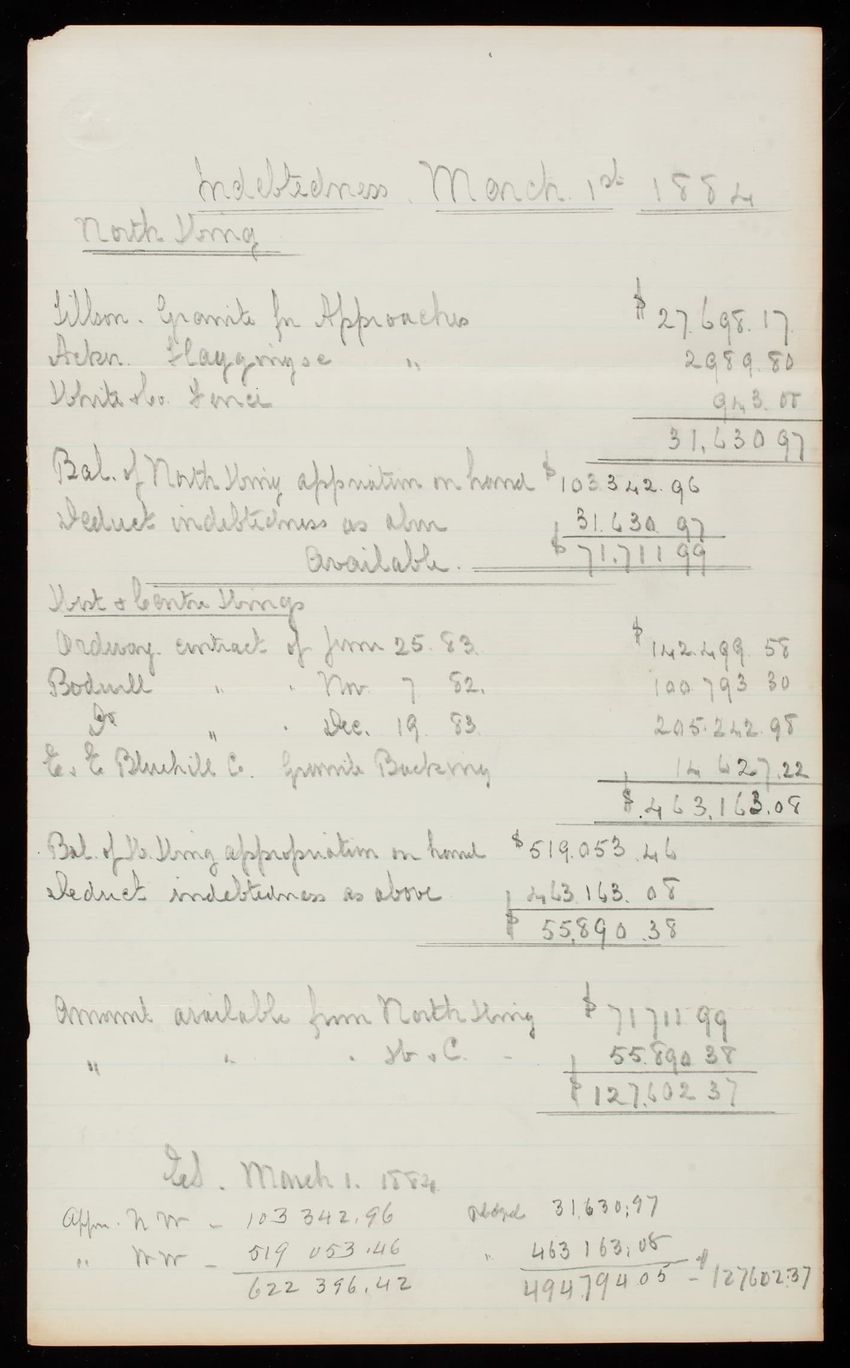 Indebtedness. March 1st 1884
North Wing
Tillson. Granite for Approaches $27.698.17.
Acker. Flaggings &c " 2989.80
White & Co. Fence 943.00
31,630 97
Bal. of North Wing appriation on hand $103.342.96
Deduct indebtedness as abov 31.630 97
Available. $71.711 99
West & Centre Wings
Ordway. contract of June 25. 83. $142.499 58
Bodwell " " Nov. 7 82. 100 793 30
Do " " Dec. 19 83 205.242.98
E. E Bluehill C. Granite Backing 14 627.22
$.463,163.08
Bal. of W. Wing appropriation on hand $519.053.46
Deduct indebtedness as above 463.163.08
$55,890.38
Amount available from North Wing $71711 99
" " " W & C. - 55.890 38
$127,602 37
March 1. 1884
Appn. N W - 103 342.96 31,630.97
" W W - 519 053.46 " 463 163.08
622 396.42 494794 05 - $127602.37